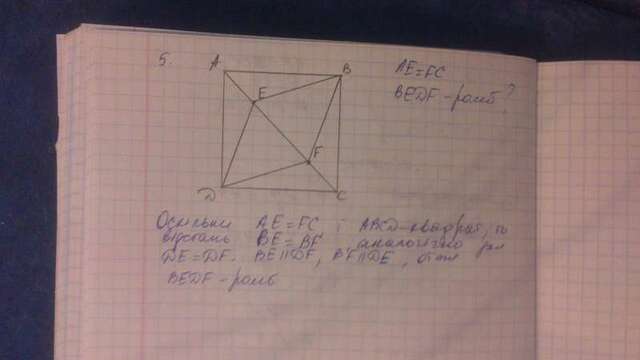 5.
A
B
AE=FC
BEDF - ромб?
E
F
D
C
Оскільки AE=FC і ABCD-квадрат, то
відстань BE=BF аналогічно для
DE=DF. BE||DF, BF||DE, отже
BEDF - ромб